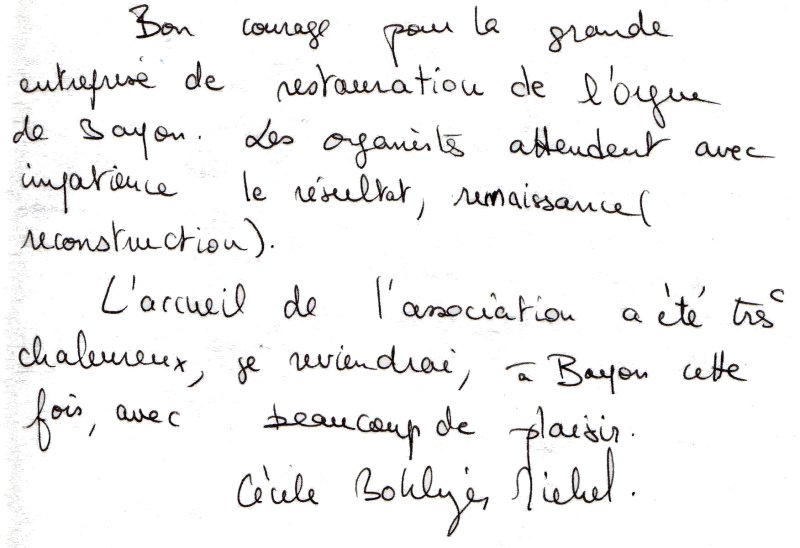 Bon courage pour la grande
entreprise de restauration de l'orgue
de Bayon. Les organistes attendent avec
impatience le résultat, renaissance (
reconstruction).
L'accueil de l'association a été très
chaleureux, je reviendrai, à Bayon cette
fois, avec beaucoup de plaisir.
Cécile